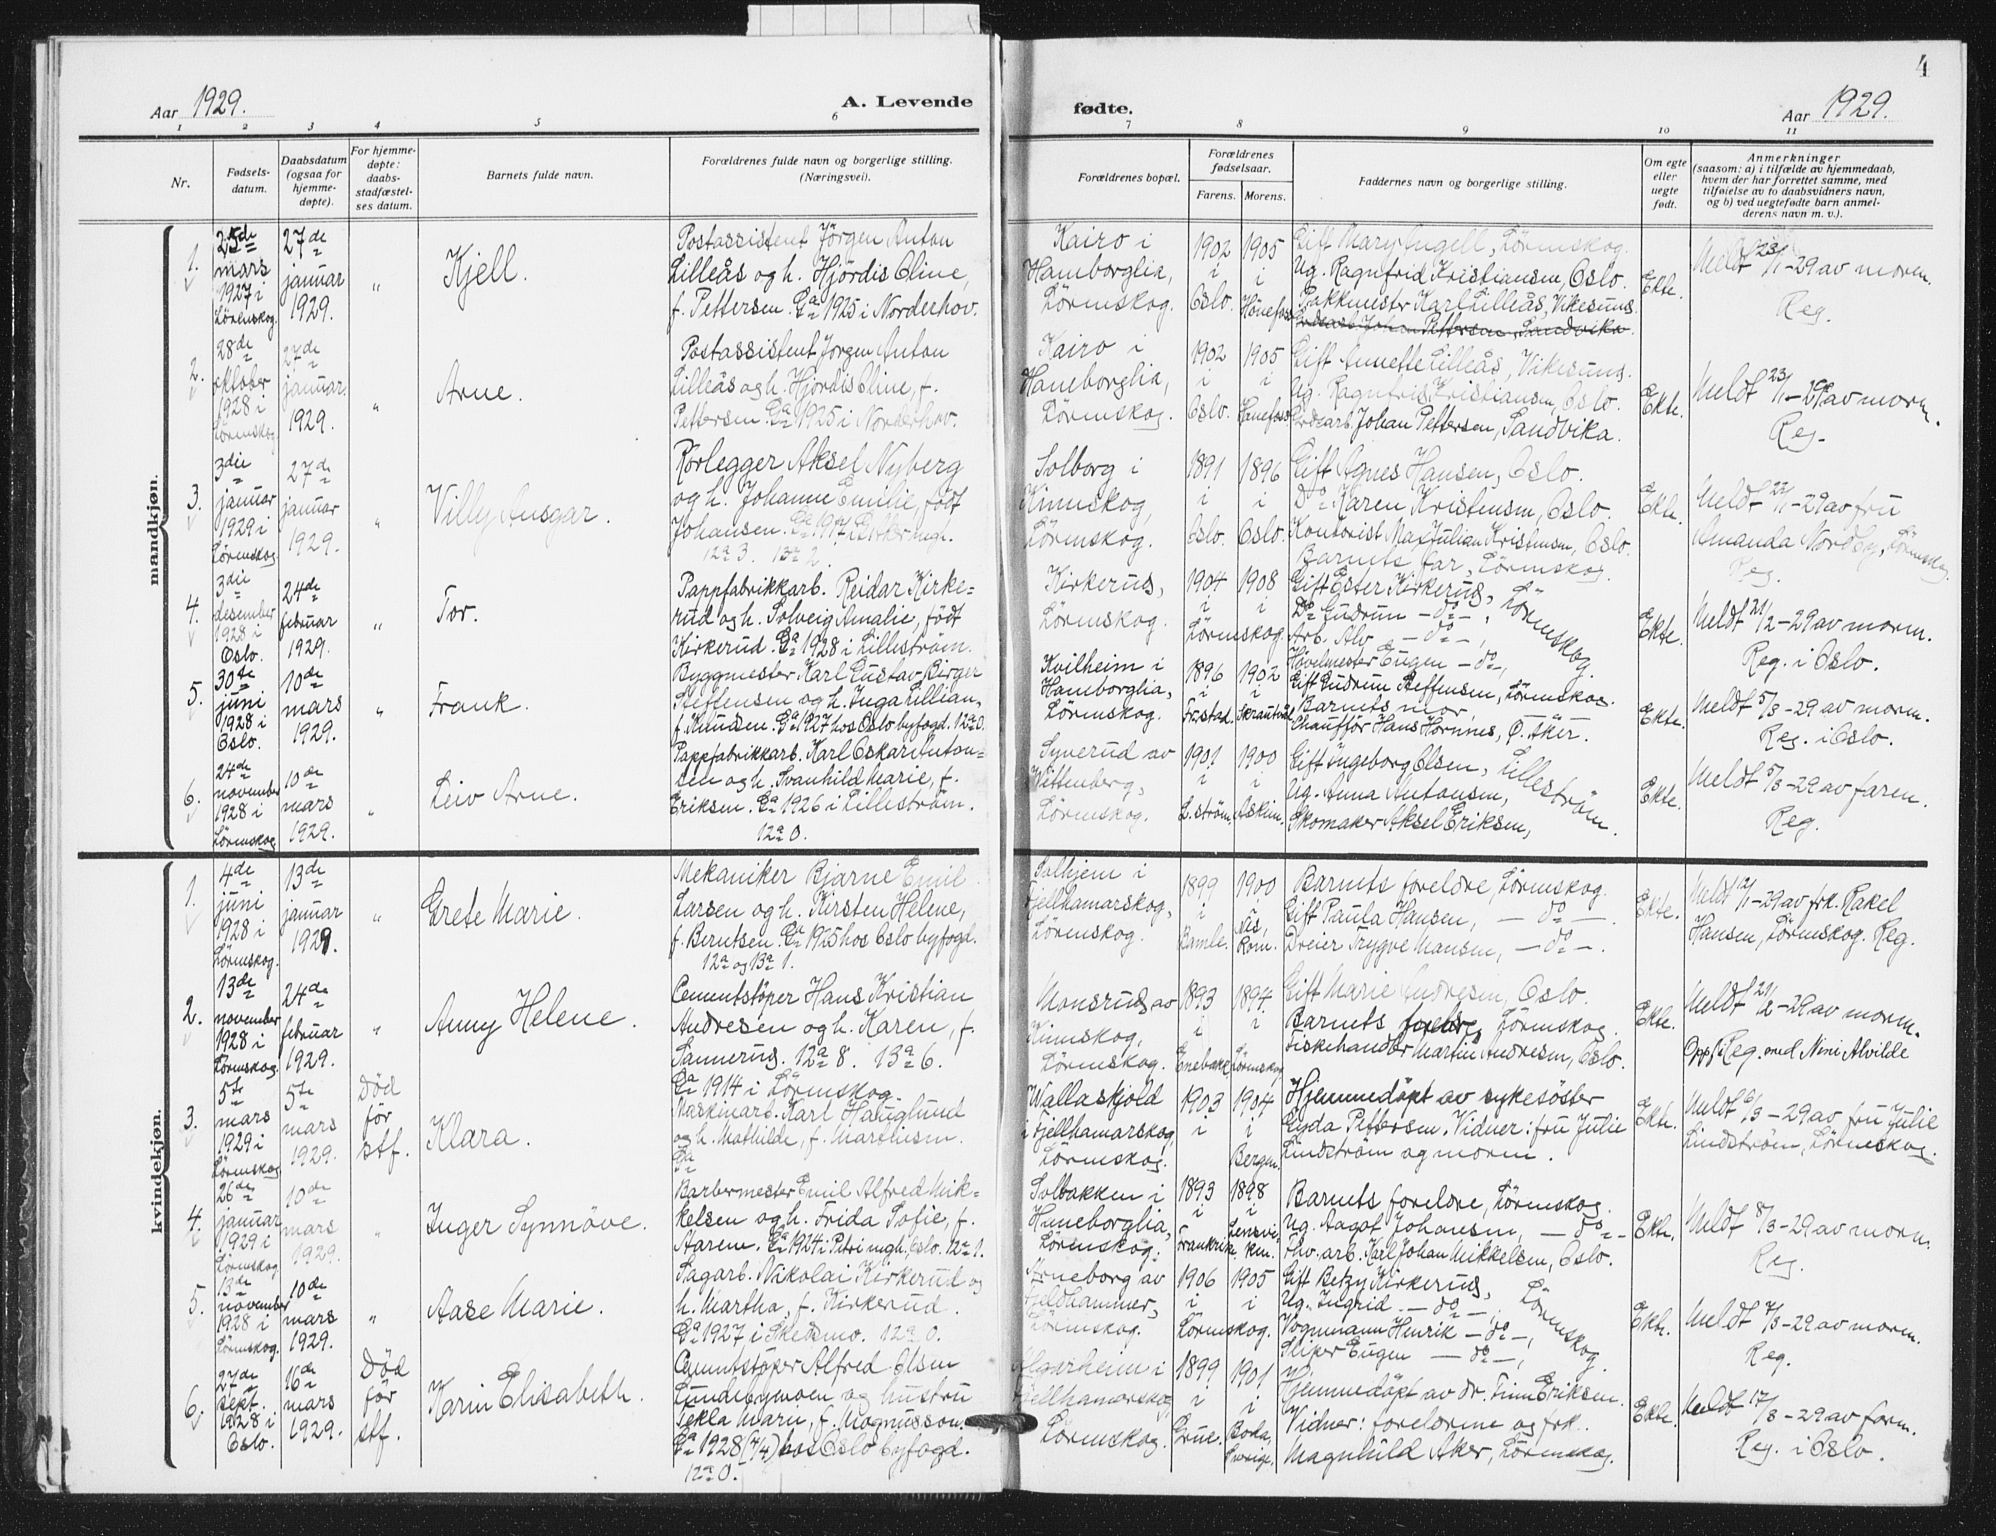 4
Aar 1929. A. Levende fødte. Aar 1929.
1 2 3 4 5 6 7 8 9 10 11
Nr.
Fødsels-
datum.
Daabsdatum
(ogsaa for
hjemme-
døpte).
For hjemme-
døpte:
daabs-
stadfæstel-
ses datum.
Barnets fulde navn.
Forældrenes fulde navn og borgerlige stilling.
(Næringsvei).
Forældrenes bopæl.
Forældrenes
fødselsaar.
Farens. Morens.
Faddernes navn og borgerlige stilling.
Om egte
eller
uegte
født.
Anmerkninger
(saasom: a) i tilfælde av hjemmedaab,
hvem der har forrettet samme, med
tilføielse av to daabsvidners navn,
og b) ved uegtefødte barn anmel-
derens navn m. v.).
mandkjøn.
1.
25de
mars
1927 i
Lørenskog.
27de
januar
1929.
"
Kjell.
Postassistent Jørgen Anton
Lilleås og h. Hjördis Oline,
f. Pettersen. Ga 1925 i Norderhov.
Kairo i
Haneborglia,
Lørenskog.
1902
i
Oslo.
1905
i
Hönefoss
Gift Mary Engell, Lørenskog.
Ug. Ragnfrid Kristiansen, Oslo.
Pakkmester Karl Lilleås, Vikesund.
Gradsarb. Johan Pettersen, Sandvika.
Ekte.
Meldt 23/1-29 av moren.
Reg.
2.
28de
oktober
1928 i
Lørenskog
27de
januar
1929.
"
Arne.
Postassistent Jørgen Anton
Lilleås og h. Hjördis Oline, f.
Pettersen. Ga 1925 i Norderhov.
Kairo i
Haneborglia,
Lørenskog.
1902
i
Oslo.
1905
i
Hønefoss
Gift Annette Lilleås, Vikesund.
Ug. Ragnfrid Kristiansen, Oslo.
Johan Pettersen, Sandvika.
Ekte.
Meldt 23/1-29 av moren.
Reg.
3.
3die
januar
1929 i
Lørenskog
27de
januar
1929.
"
Villy Ansgar.
Rørlegger Aksel Nyberg
og h. Johanne Emilie, født
Johansen. Ga 1917 i Petri mgh.
12a 3. 13a 2.
Solborg i
Kinnskog,
Lørenskog.
1891
i
Oslo.
1896
i
Oslo.
Gift Agnes Hansen, Oslo.
Do Karen Kristensen, Oslo.
Kontorist Max Julian Kristensen, Oslo.
Barnets far, Lørenskog.
Ekte.
Meldt 22/1-29 av fru
Amanda Nordby, Lørenskog
Reg.
4.
3die
desember
1928 i
Oslo.
24de
februar
1929.
"
Tor.
Pappfabrikkarb. Reidar Kirke-
rud og h. Solveig Amalie, født
Kirkerud. Ga 1928 i Lilleström.
Kirkerud,
Lørenskog.
1904
i
1908
i
Lørenskog.
Gift Ester Kirkerud,
Do Gudrun — do —,
Arb. Alv — do —,
Høvelmester Eugen — do,
Lørenskog
Ekte.
Meldt 21/2-29 av moren.
Reg. i Oslo.
5.
30te
juni
1928 i
Oslo.
10de
mars
1929.
"
Frank.
Byggmester Karl Gustav Birger
Steffensen og h. Inga Lillian,
f. Knudsen. Ga 1927 hos Oslo byfogd. 12a 0.
Kvilheim i
Haneborglia,
Lørenskog.
1896
i
Fr.stad.
1902
i
Skrautvål
Gift Gudrun Steffensen, Lørenskog.
Barnets mor,
Chauffør Hans Hornnes, Ø. Aker.
Ekte.
Meldt 5/3-29 av moren.
Reg. i Oslo.
6.
24de
november
1928 i
Lørenskog
10de
mars
1929.
"
Leiv Arne.
Pappfabrikkarb. Karl Oskar Anton-
sen og h. Svanhild Marie, f.
Eriksen. Ga 1926 i Lilleström.
12a 0.
Syverud av
Wittenberg,
Lørenskog.
1901
i
L.strøm.
1900
i
Askim.
Gift Ingeborg Olsen,
Ug. Anna Antonsen,
Skomaker Aksel Eriksen,
Lilleström.
Ekte.
Meldt 5/3-29 av faren.
Reg.
kvindekjøn.
1.
4de
juni
1928 i
Lørenskog.
13de
januar
1929.
"
Grete Marie.
Mekaniker Bjarne Emil
Larsen og h. Kirsten Helene,
f. Berntsen. Ga 1925 hos Oslo byfogd.
12a og 13a 1.
Solhjem i
Fjellhamarskog,
Lørenskog.
1899
i
Bamle.
1900
Nes,
Rom.
Barnets foreldre, Lørenskog.
Gift Paula Hansen, — do —.
Dreier Trygve Hansen, — do —.
Ekte.
Meldt 12/1-29 av frk. Rakel
Hansen, Lørenskog. Reg.
2.
13de
november
1928 i
Lørenskog
24de
februar
1929.
"
Anny Helene.
Cementstöper Hans Kristian
Andresen og h. Karen, f.
Sannerud. 12a 8. 13a 6.
Ga 1914 i Lørenskog.
Monsrud av
Kinnskog,
Lørenskog.
1893
i
Enebakk
1894
i
Lørenskog
Gift Marie Andresen, Oslo.
Barnets foreldre, Lørenskog.
Fiskehandler Martin Andresen, Oslo.
Ekte.
Meldt 21/2-29 av moren.
Oppf. i Reg. med Nini Alvilde
3.
5te
mars
1929 i
Lørenskog
5te
mars
1929.
Död
för
stf.
Klara.
Maskinarb. Karl Hauglund
og h. Mathilde, f. Martinsen.
Ga
Wallaskjold
i Fjellhamarskog,
Lørenskog.
1903
i
1904
i
Bergen.
Hjemmedöpt av sykesöster
Gyda Pettersen. Vidner: fru Julie
Lindström og moren.
Ekte.
Meldt 6/3-29 av fru Julie
Lindström, Lørenskog.
4.
26de
januar
1929 i
Lørenskog
10de
mars
1929.
"
Inger Synnöve.
Barbermester Emil Alfred Mik-
kelsen og h. Frida Sofie, f.
Aarene. Ga 1924 i Petri mgh., Oslo. 12a 1.
Solbakken i
Haneborglia,
Lørenskog.
1893
i
Frankrik
1898
i
Lensvi-
ken.
Barnets foreldre, Lørenskog.
Ug. Aagot Johansen, — do —
Thv. arb. Karl Johan Mikkelsen, Oslo.
Ekte.
Meldt 8/3-29 av moren.
Reg.
5.
13de
november
1928 i
Lørenskog.
10de
mars
1929.
"
Aase Marie.
Sagarb. Nikolai Kirkerud og
h. Martha, f. Kirkerud.
Ga 1927 i Skedsmo. 12a 0.
Arneborg av
Fjeldhammer,
Lørenskog.
1906
i
1905
i
Lørenskog.
Gift Betzy Kirkerud,
Ug. Ingrid — do —,
Vognmann Henrik — do —,
Sliper Eugen — do —,
Lørenskog
Ekte.
Meldt 7/3-29 av moren.
Reg.
6.
27de
sept.
1928 i
Oslo.
16de
mars
1929.
Död
för
stf.
Karin Elisabeth.
Cementstöper Alfred Olsen
Lundebyvoen og hustru
Tekla Maria, f. Magnusson.
Ga 1928 (4/4) hos Oslo byfogd.
12a 0.
Algarheim i
Fjellhamarskog,
Lørenskog.
1899
i
Grue.
1901
i
Boda,
Sverige.
Hjemmedöpt av dr. Finn Eriksen.
Vidner: foreldrene og frk.
Magnhild Aker, Lørenskog.
Ekte.
Meldt 17/3-29 av faren.
Reg. i Oslo.